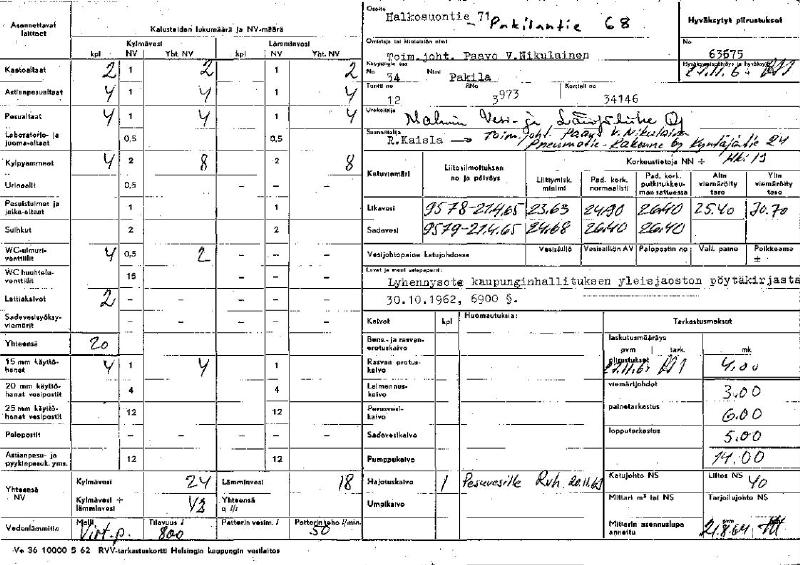 Asennettavat laitteet
Kalusteiden lukumäärä ja NV-määrä
Kylmävesi Lämminvesi
kpl NV Yht. NV kpl NV Yht. NV
Kastoaltaat 2 1 2 1 2
Astianpesualtaat 4 1 4 1 4
Pesualtaat 4 1 4 1 4
Laboratorio- ja juoma-altaat 0,5 0,5
Kylpyammeet 4 2 8 2 8
Urinaalit 0,5 – – –
Pesuistuimet ja jalka-altaat 1 1
Suihkut 2 2
WC-imuriventtiilit 4 0,5 2 – – –
WC huuhteluventtiilit 15 – – –
Lattiakaivot 2 – – – – –
Sadevesisyöksyviemärit – – – – –
Yhteensä 20 – – – – –
15 mm käyttöhanat 4 1 4 1
20 mm käyttöhanat vesipostit 4 4
25 mm käyttöhanat vesipostit 12 12
Palopostit – – – – –
Astianpesu- ja pyykinpesuk. yms. 12 12
Yhteensä NV
Kylmävesi 24 Lämminvesi 18
Kylmävesi + lämminvesi 42 Yhteensä q l/s
Vedenlämmitin
Malli Virt.p. Tilavuus l 800 Patterin vesim. l Patterin teho l/min. 50
Ve 36 10000 5 62 RVV-tarkastuskortti Helsingin kaupungin vesilaitos
Osoite
Halkosuontie 71 Pakilantie 68
Omistaja tai kiinteistön nimi
Toim.joht. Paavo V.Nikulainen
Kaupungin osa
No 34 Nimi Pakila
Tontti no 12 RNo 3973 Kortteli no 34146
Urakoitsija Malmin Vesi- ja Lämpöliike Oy
Suunnittelija
R.Kaisla → Toim.joht. Paavo V. Nikulainen
Pneumatic-Rakenne Oy Kyntäjäntie 24
Hki 19
Hyväksytyt piirustukset
No 63675
Hyväksymispäivä ja hyväksyjä
Katuviemäri Liitosilmoituksen no ja päiväys Korkeustietoja NN +
Liittymisk. minimi Pad. kork. normaalisti Pad. kork. poikkeuksen mansattuessa Alin viemäröity taso Ylin viemäröity taso
Likavesi 9578-21.4.65 23.63 24.90 26.40 25.40 30.70
Sadevesi 9579-21.4.65 24.68 26.40 26.40
Vesijohtopaine katujohdossa Vesisäiliö Vesisäiliön AV Palopostin no Vali. paine Poikkeama ±
Luvat ja muut asiapaperit
Lyhennysote kaupunginhallituksen yleisjaoston pöytäkirjasta
30.10.1962, 6900 §.
Kaivot kpl Huomautuksia: Tarkastusmaksut
Bens.- ja rasvanerotuskaivo
Rasvan erotuskaivo
Laimennuskaivo
Perusvesikaivo
Sadevesikaivo
Pumppukaivo
Hajotuskaivo 1 Pesuvesille Rvh. 20.11.63
Umpikaivo
laskutusmääräys
pvm tark. mk.
piirustukset 4.00
viemärijohdot 3.00
painetarkastus 6.00
lopputarkastus 5.00
14.00
Katujohto NS Liitos NS 40
Mittari m³ tai NS Tarjoilujohto NS
Mittarin asennuslupa annettu pvm 21.8.64